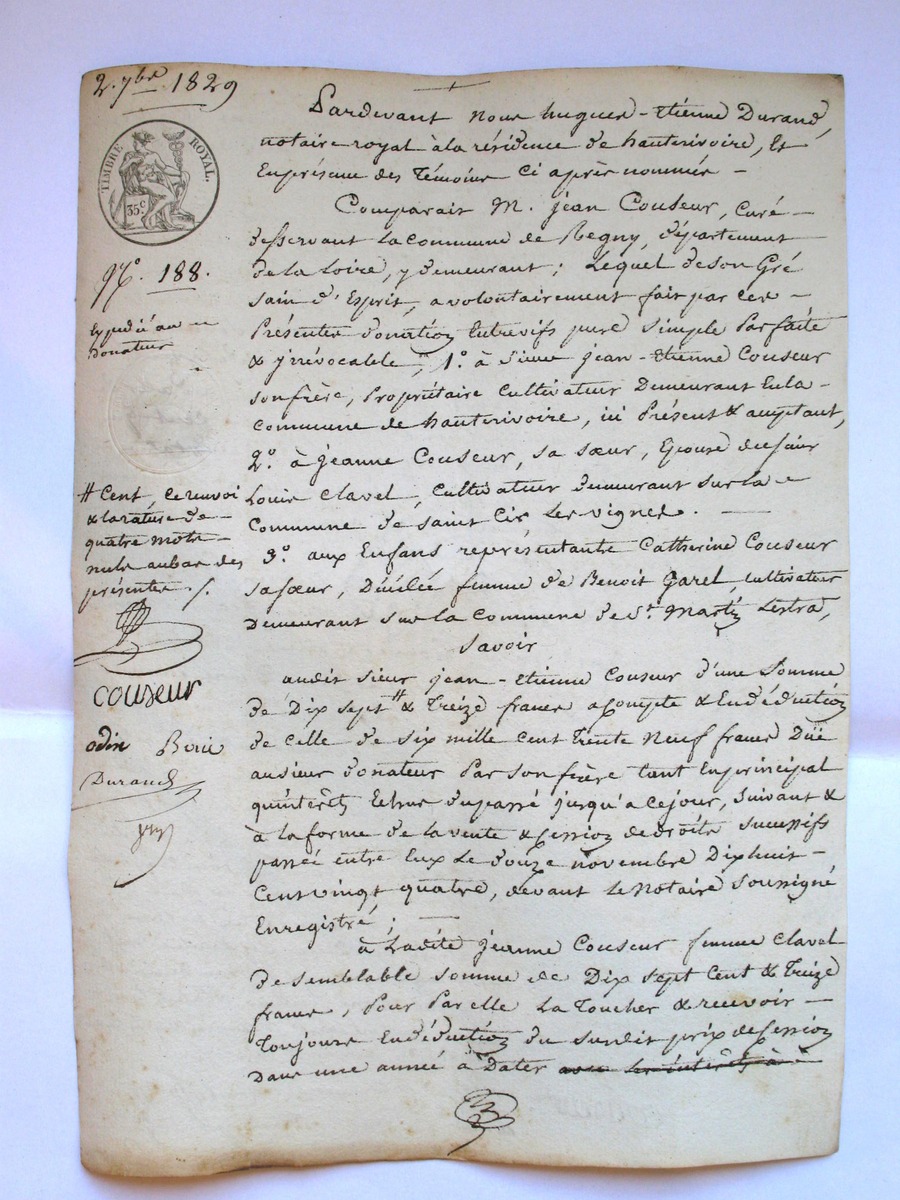 2. 7bre. 1829
TIMBRE ROYAL.
35c
No. 188.
Expédié au
donateur
# Cent, ce renvoi
& la rature de
quatre mots
nuls au bas des
présentes /.
couseur
odin
Durand
Pardevant Nous hugues-Etienne Durand,
notaire royal à la résidence de hauterivoire, Et
En présence des Témoins Ci après nommés -
Comparait M. jean Couseur, Curé -
desservant la commune de Regny, département
de la Loire, y demeurant; Lequel de son Gré
Sain d'Esprit, a volontairement fait par ces -
Présentes donation Entrevifs pure Simple Parfaite
& jrrévocable, 1o. à Sieur jean-Etienne Couseur
son frère, Propriétaire Cultivateur Demeurant En la -
Commune de hauterivoire, ici Présent & acceptant,
2o. à Jeanne Couseur, sa sœur, Epouse de sieur
Louis Clavel, Cultivateur demeurant sur la
Commune de Saint Cir Les vignes. -
3o. aux Enfans représentants Catherine Couseur
sa sœur, Décédée femme de Benoit Garel, cultivateur
Demeurant Sur la Commune de St. Martin Lestra,
Savoir
audit sieur jean-Etienne Couseur d'une Somme
de Dix sept # & Treize francs acompte & En déduction
de celle de six mille Cent Trente Neuf francs Düe
au sieur donateur Par son frère tant En principal
qu'intérêts Echus du passé jusqu'a ce jour, Suivant &
à la forme de la vente & Cession de droits Successifs
passée entre Eux Le douze novembre Dix huit -
Cent vingt quatre, devant Le Notaire Soussigné
Enregistré; -
à Ladite Jeanne Couseur femme Clavel
de semblable somme de Dix sept Cent & Treize
francs, Pour Par elle La Toucher & recevoir -
Toujours En déduction du Susdit prix de Cession
Dans une année à Dater avec les intérêts à